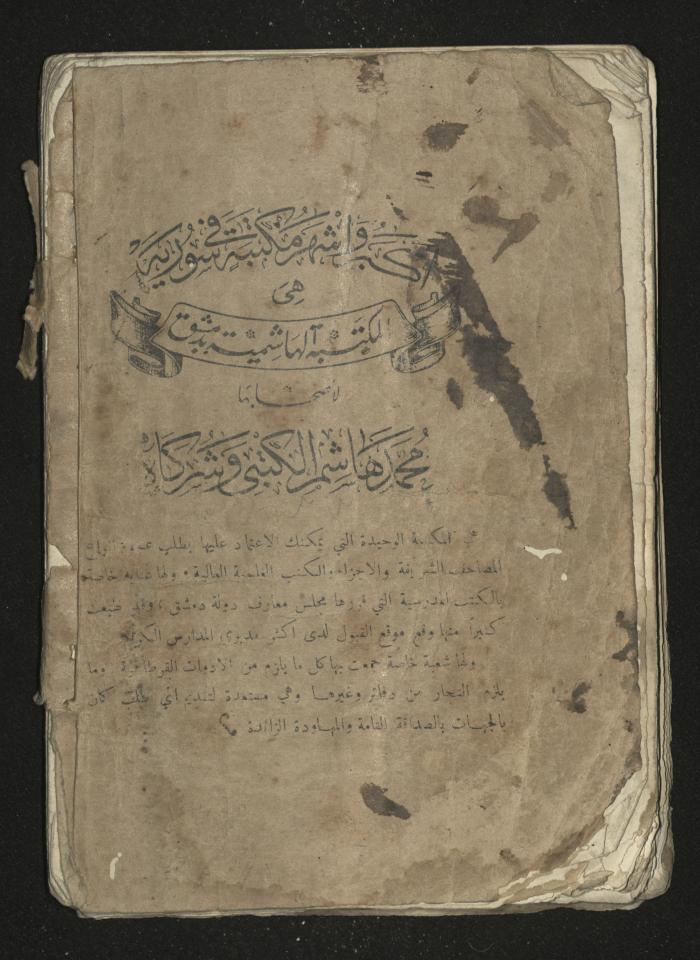 أكبر وأشهر مكتبة في سورية
هي
المكتبة الهاشمية بدمشق
لأصحابها
محمد هاشم الكتبي وشركاه
هي المكتبة الوحيدة التي يمكنك الاعتماد عليها بطلب عموم انواع
المصاحف الشريفة والاجزاء والكتب العلمية العالية ولها عناية خاصة
بالكتب المدرسية التي قررها مجلس معارف دولة دمشق ، وقد طبعت
كثيراً منها وقع موقع القبول لدى اكثر مديري المدارس الكرام
ولها شعبة خاصة جمعت بها كل ما يلزم من الادوات القرطاسية وما
يلزم التجار من دفاتر وغيرها وهي مستعدة لتقديم اي طلب كان
بالجهات بالصداقة التامة والمهاودة الزائدة